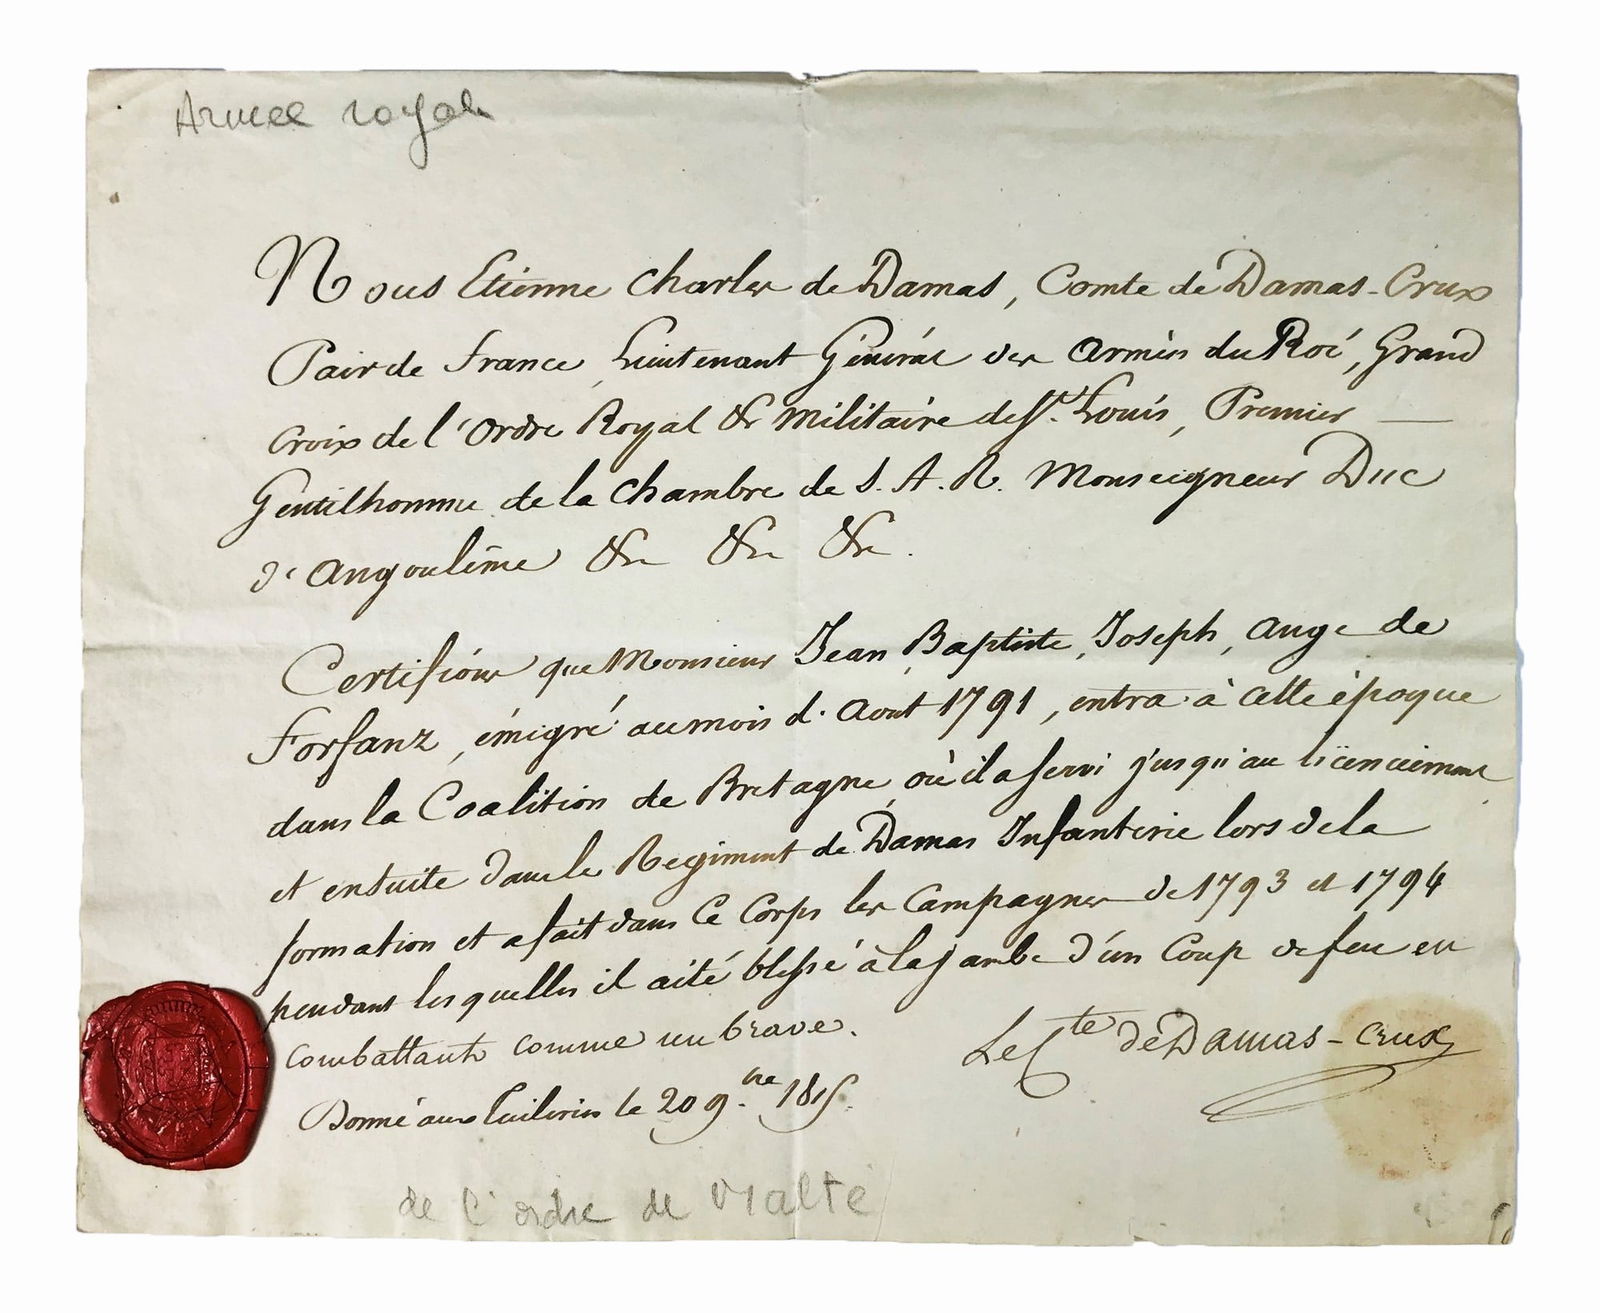 Armée royale
Nous Etienne Charles de Damas, Comte de Damas-Crux
Pair de france, Lieutenant Général des Armées du Roi, Grand
Croix de l'Ordre Royal & Militaire de St. Louis, Premier —
Gentilhomme de la Chambre de S. A. R. Monseigneur Duc
d'Angoulême &c &c &c.
Certifions que Monsieur Jean, Baptiste, Joseph, Ange de
Forsanz, émigré au mois d'Aout 1791, entra à cette époque
dans la Coalition de Bretagne, où il a servi jusqu'au licenciement
et ensuite dans le Regiment de Damas Infanterie lors de la
formation et a fait dans ce Corps les Campagnes de 1793 et 1794
pendant lesquelles il a été blessé à la jambe d'un Coup de feu en
combattant comme un brave.
Le Cte de Damas-Crux
Donné aux Tuileries le 20 9.bre 1815.
de l'ordre de Malte